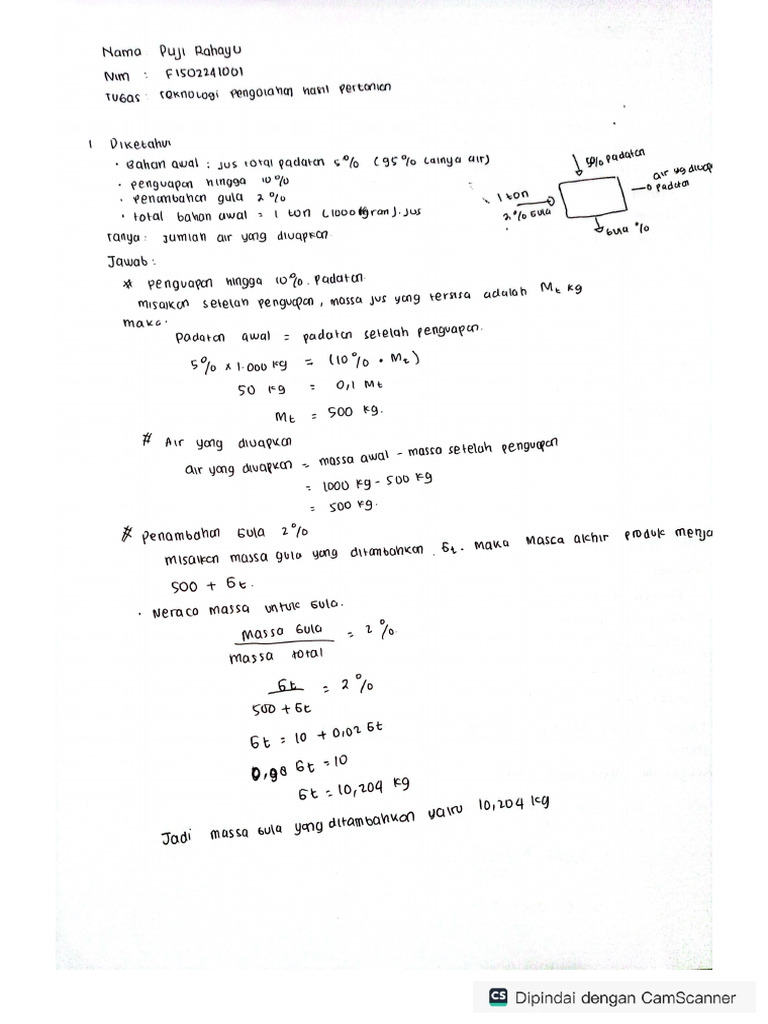 Nama Puji Rahayu
Nim : F1502241001
Tugas : Teknologi pengolahan hasil pertanian
1 Diketahui
• Bahan awal : jus total padatan 5% (95% lainya air)
• penguapan hingga 10%
• penambahan gula 2%
• total bahan awal = 1 ton (1000 ). jus
Tanya : Jumlah air yang diuapkan
padatan
air yg diuap
padatan
1 ton
2% Gula
Gula %
Jawab :
* penguapan hingga 10% padatan
misalkan setelah penguapan, massa jus yang tersisa adalah Mt kg
maka.
Padatan awal = padatan setelah penguapan.
5% x 1.000 kg = (10% • Mt)
50 kg = 0,1 Mt
Mt = 500 kg.
# Air yang diuapkan
air yang diuapkan = massa awal - massa setelah penguapan
= 1000 kg - 500 kg
= 500 kg.
* Penambahan Gula 2%
misalkan massa gula yang ditambahkan Gt. Maka Massa akhir produk menja
500 + Gt.
• Neraca massa untuk Gula.
Massa Gula / massa total = 2%
Gt / 500 + Gt = 2%
Gt = 10 + 0,02 Gt
0,98 Gt = 10
Gt = 10,204 kg
Jadi massa Gula yang ditambahkan yaitu 10,204 kg
CS Dipindai dengan CamScanner